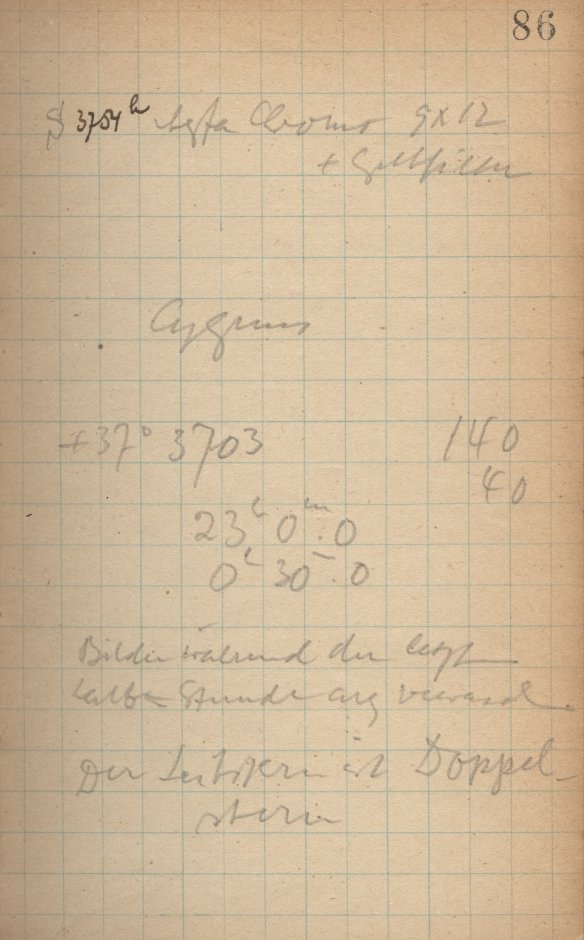 86
S 3754h Agfa Chromo 9x12
+ Gelbfilter
Cygnus
+37° 3703 140
40
23h 0m.0
0h 30m.0
Bilder während der letzt
halben Stunde arg
Der Leitstern ist Doppel-
stern